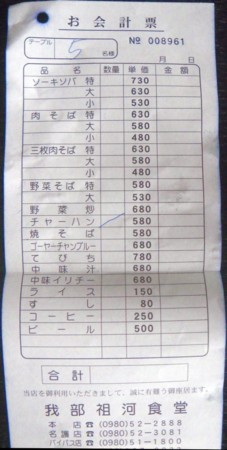 お会計票
テーブル 5 名様 No 008961
月 日
品名 数量 単価 金額
ソーキソバ 特 730
大 630
小 530
肉そば 特 630
大 580
小 480
三枚肉そば 特 630
大 580
小 480
野菜そば 特 580
大 530
野菜炒 680
チャーハン 580
焼そば 580
ゴーヤーチャンプルー 680
てびち 780
中味汁 680
中味イリチー 680
ライス 150
すし 80
コーヒー 250
ビール 500
合計
当店を御利用いただきまして、誠に有難う御座居ます。
我部祖河食堂
本店☎(0980)52-2888
名護店☎(0980)52-3081
バイパス店☎(0980)51-1800